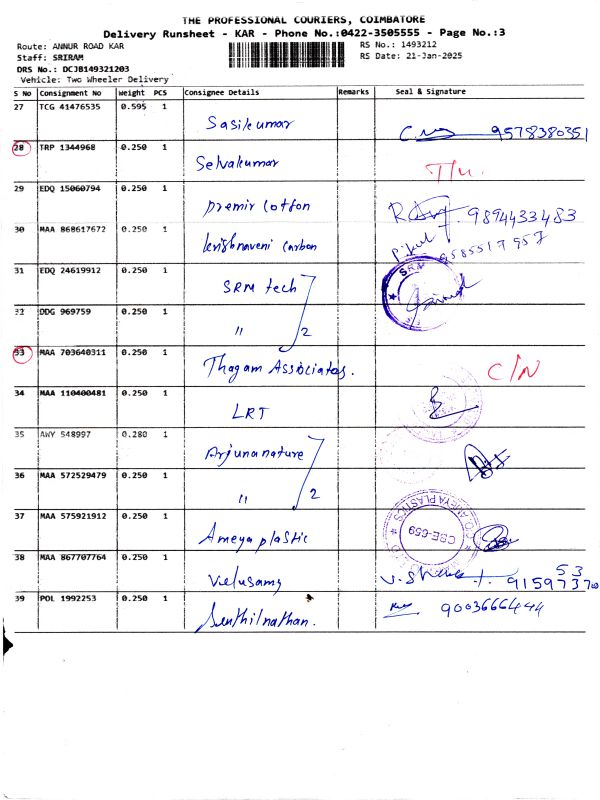 THE PROFESSIONAL COURIERS, COIMBATORE
Delivery Runsheet - KAR - Phone No.:0422-3505555 - Page No.:3
Route: ANNUR ROAD KAR
RS No.: 1493212
Staff: SRIRAM
RS Date: 21-Jan-2025
DRS No.: DCJB149321203
Vehicle: Two Wheeler Delivery
S No Consignment No Weight PCS Consignee Details Remarks Seal & Signature
27 TCG 41476535 0.595 1
Sasikumar 9578380351
28 TRP 1344968 0.250 1
Selvakumar
29 EDQ 15060794 0.250 1
premir cotton 9894433483
30 MAA 868617672 0.250 1
krishnaveni carbon 9585517957
31 EDQ 24619912 0.250 1
SRM tech SRM
32 DDG 969759 0.250 1
" 2
33 MAA 703640311 0.250 1
Thagam Associates. C/N
34 MAA 110400481 0.250 1
LRT
35 AWY 548997 0.280 1
Arjuna nature
36 MAA 572529479 0.250 1
" 2
37 MAA 575921912 0.250 1
Ameya plastic AMEYA PLASTICS CBE-659
38 MAA 867707764 0.250 1
Velusamy
39 POL 1992253 0.250 1
Senthilnathan. 9003666444